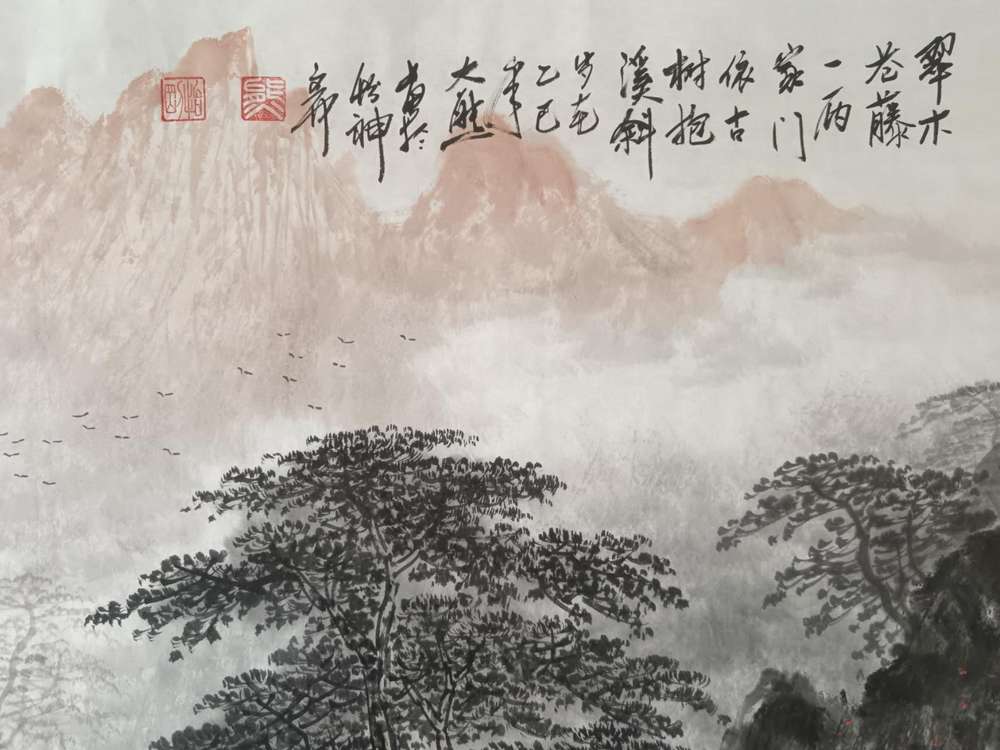 翠木
苍藤
一两
家门
依古
树抱
溪斜
岁在
乙巳
年
大熊
於
神